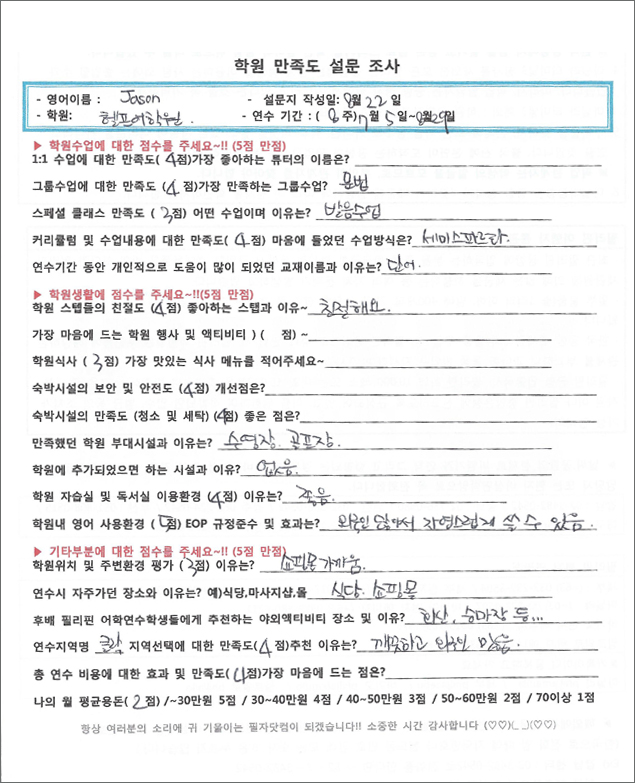 학원 만족도 설문 조사
- 영어이름 : Jason - 설문지 작성일: 8월 22일
- 학원: 헬프어학원 - 연수 기간 : ( 8주)7월 5일~8월29일
▶ 학원수업에 대한 점수를 주세요~!! (5점 만점)
1:1 수업에 대한 만족도( 4점)가장 좋아하는 튜터의 이름은?
그룹수업에 대한 만족도 ( 4점)가장 만족하는 그룹수업? 문법
스페셜 클래스 만족도 ( 3점) 어떤 수업이며 이유는? 발음수업
커리큘럼 및 수업내용에 대한 만족도( 4점) 마음에 들었던 수업방식은? 세미스파르타.
연수기간 동안 개인적으로 도움이 많이 되었던 교재이름과 이유는? 단어.
▶ 학원생활에 점수를 주세요~!!(5점 만점)
학원 스텝들의 친절도 (4점) 좋아하는 스탭과 이유~ 친절해요.
가장 마음에 드는 학원 행사 및 액티비티 ) ( 점) ~
학원식사 ( 3점) 가장 맛있는 식사 메뉴를 적어주세요~
숙박시설의 보안 및 안전도 (4점) 개선점은?
숙박시설의 만족도 (청소 및 세탁) (4점) 좋은 점은?
만족했던 학원 부대시설과 이유는? 수영장. 골프장.
학원에 추가되었으면 하는 시설과 이유? 없음.
학원 자습실 및 독서실 이용환경 (4점) 이유는? 좋음.
학원내 영어 사용환경 ( 점) EOP 규정준수 및 효과는? 외국인 많아서 자연스럽게 쓸 수 있음.
▶ 기타부분에 대한 점수를 주세요~!! (5점 만점)
학원위치 및 주변환경 평가 (3점) 이유는? 쇼핑몰 가까움.
연수시 자주가던 장소와 이유는? 예)식당,마사지샵,몰 식당. 쇼핑몰
후배 필리핀 어학연수학생들에게 추천하는 야외액티비티 장소 및 이유? 화산, 승마장 등...
연수지역명 클락 지역선택에 대한 만족도(4점)추천 이유는? 깨끗하고 외국인 많음.
총 연수 비용에 대한 효과 및 만족도(4점)가장 마음에 드는 점은?
나의 월 평균용돈(2점) /~30만원 5점 / 30~40만원 4점 / 40~50만원 3점 / 50~60만원 2점 / 70이상 1점
항상 여러분의 소리에 귀 기울이는 필자닷컴이 되겠습니다!! 소중한 시간 감사합니다 (♡♡)(_ _)(♡♡)